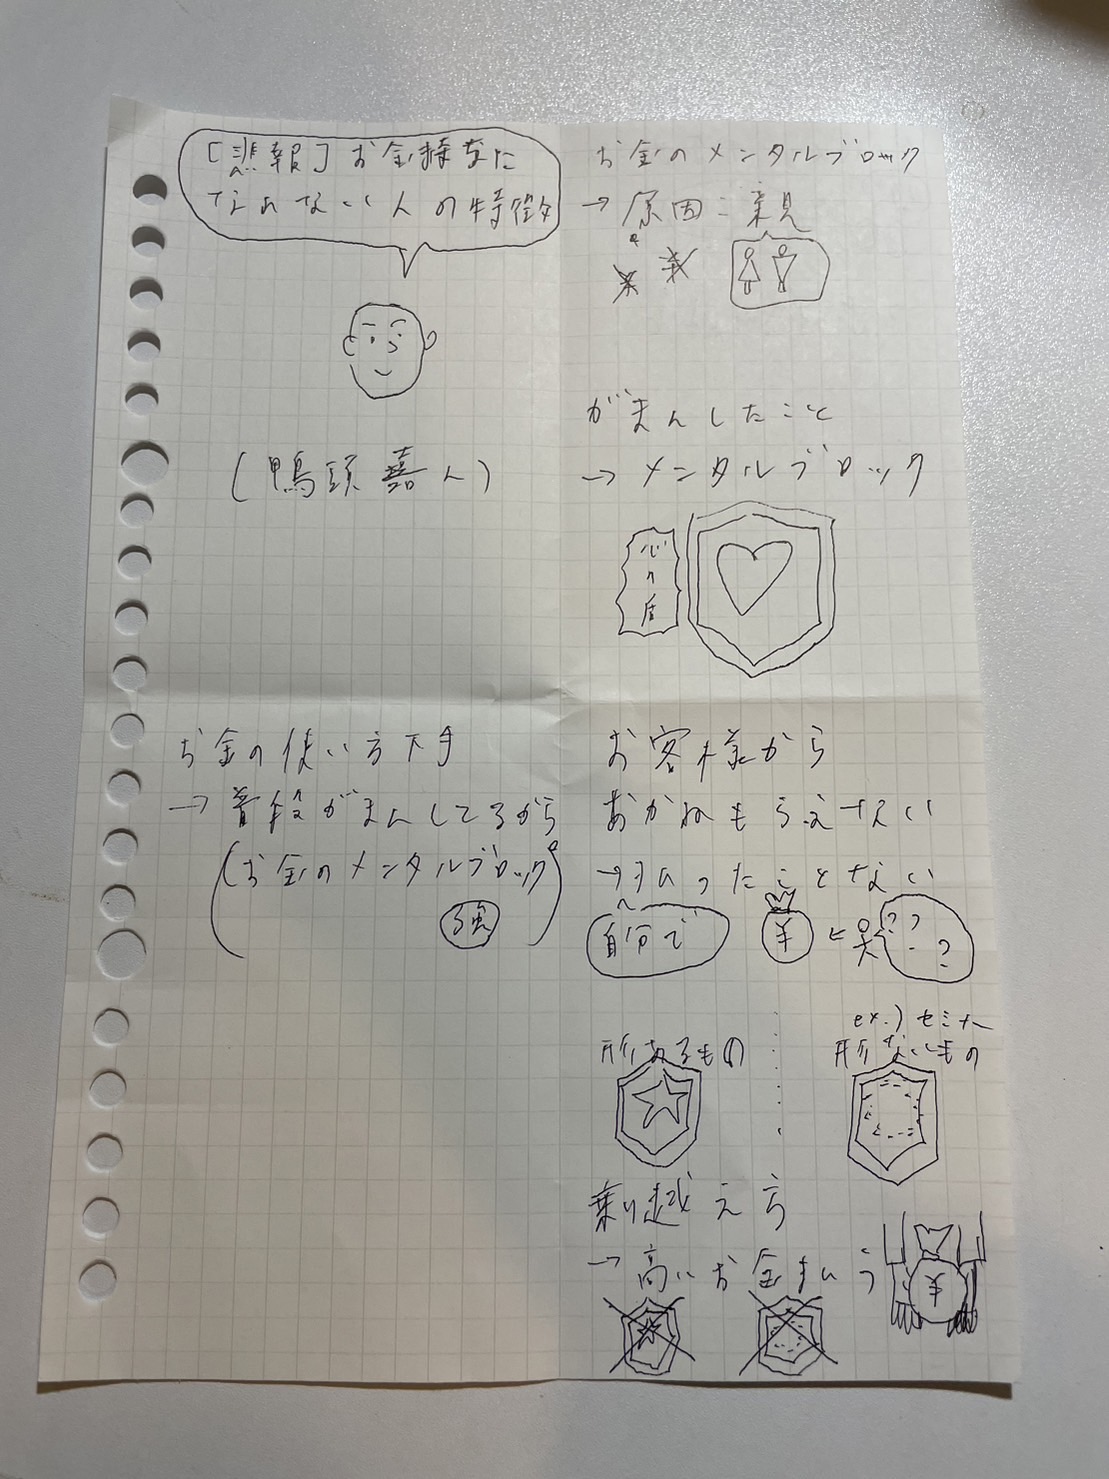 [悲報]お金持ちに
なれない人の特徴
(鴨頭嘉人)
お金のメンタルブロック
→原因:親
がまんしたこと
→メンタルブロック
心の盾
お金の使い方下手
→普段がまんしてるから
(お金のメンタルブロック
強)
お客様から
おかねもらえない
→払ったことない
自分で
¥
??
?
形あるもの
ex.)セミナー
形ないもの
乗り越え方
→高いお金払う
¥